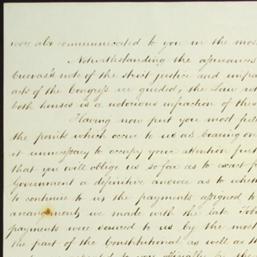 now also communicated to you in the most
Notwithstanding the assurances
Cuevas's note of the strict justice and impar
acts of the Congress we guided, the Law re
both houses is a notorious infraction of thes
Having now put you most full
the points which occur to us as bearing on
it unnecessary to occupy your attention furt
that you will oblige us so far as to exact f
Government a definitive answer as to wheth
to continue to us the payments assigned to
arrangements we made with the late
payments were secured to us by the most
the part of the Constitutional as well as th